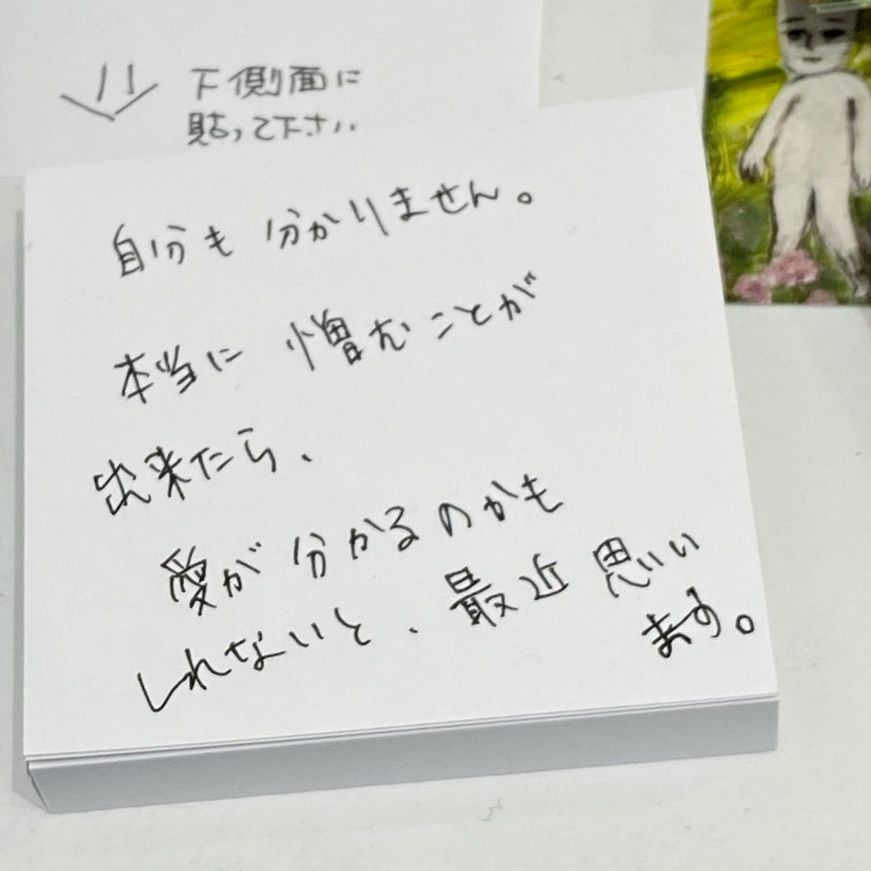 下側面に
貼って下さい
自分も分かりません。
本当に憎むことが
出来たら、
愛が分かるのかも
しれないと、最近思い
ます。